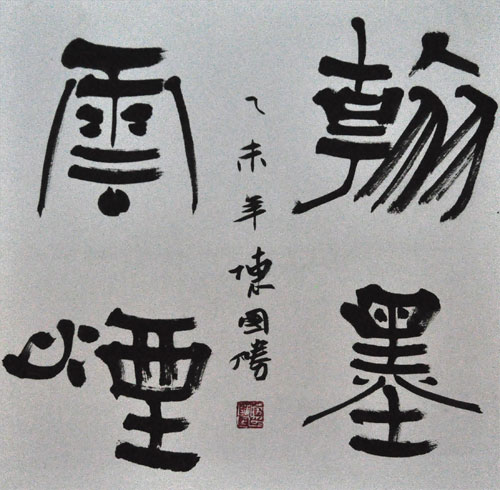 翰墨
雲煙
乙未年陳國勝